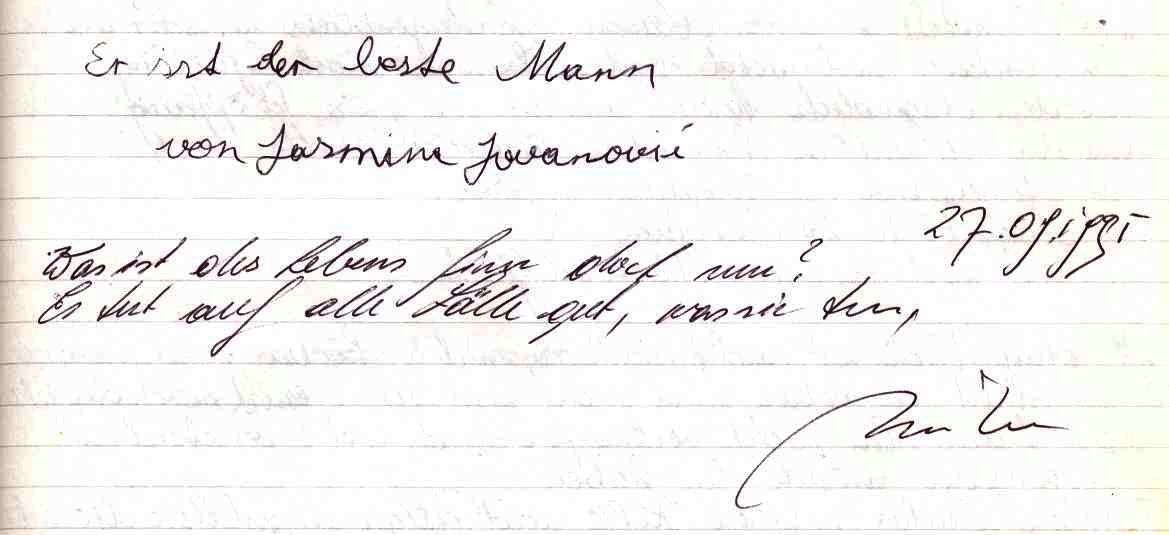 Er ist der beste Mann
von Jasmina Jovanović
27.09.1991
Was ist des Lebens Sinn doch nun?
Es tut auf alle Fälle gut, was sie tun,